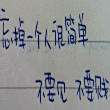 忘掉一个人很简单
不要见 不要贱